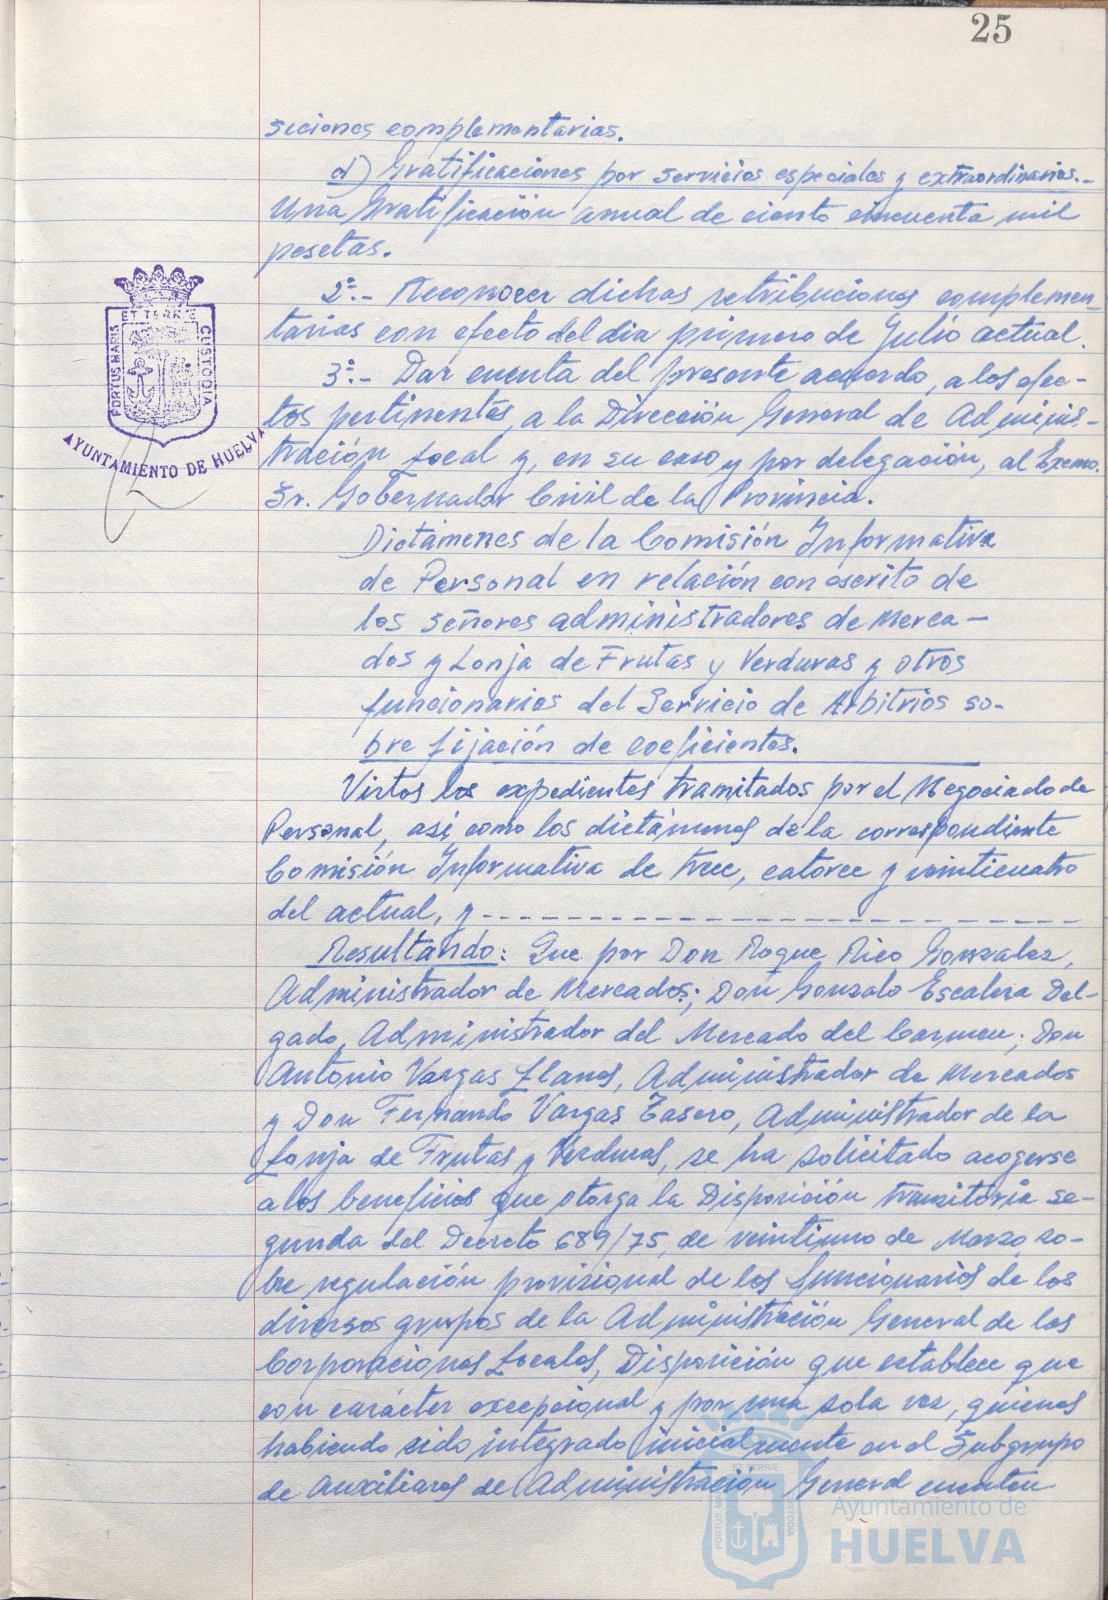 25
siciones complementarias.
d) Gratificaciones por servicios especiales y extraordinarios.-
Una Gratificación anual de ciento cincuenta mil
pesetas.
2º.- Reconocer dichas retribuciones complemen-
tarias con efecto del dia primero de Julio actual.
3º.- Dar cuenta del presente acuerdo, a los efec-
tos pertinentes, a la Dirección General de Adminis-
tración Local y, en su caso y por delegación, al Excmo.
Sr. Gobernador Civil de la Provincia.
Dictámenes de la Comisión Informativa
de Personal en relación con escrito de
los señores administradores de Merca-
dos y Lonja de Frutas y Verduras y otros
funcionarios del Servicio de Arbitrios so-
bre fijación de coeficientes.
Vistos los expedientes tramitados por el Negociado de
Personal, así como los dictámenes de la correspondiente
Comisión Informativa de trece, catorce y veinticuatro
del actual, y
Resultando: Que por Don Roque Rico Gonzalez,
Administrador de Mercados; Don Gonzalo Escalera Del-
gado, Administrador del Mercado del Carmen; Don
Antonio Vargas Llanes, Administrador de Mercados
y Don Fernando Vargas Tasero, Administrador de la
Lonja de Frutas y Verduras, se ha solicitado acogerse
a los beneficios que otorga la Disposición transitoria se-
gunda del Decreto 689/75, de veintiuno de Marzo, so-
bre regulación provisional de los funcionarios de los
diversos grupos de la Administración General de las
Corporaciones Locales, Disposición que establece que
con carácter excepcional y por una sola vez, quienes
habiendo sido integrado inicialmente en el Subgrupo
de Auxiliares de Administración General cuenten
PORTUS MARIS ET TERRÆ CUSTODIA
AYUNTAMIENTO DE HUELVA
PORTUS MARIS ET TERRÆ CUSTODIA
Ayuntamiento de
HUELVA